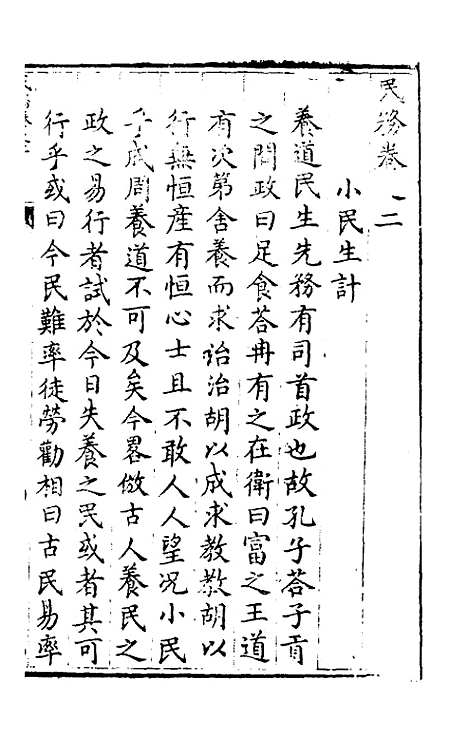 民務卷二
小民生計
養道民生先務有司首政也故孔子荅子貢
之問政曰足食荅冉有之在衛曰富之王道
有次第舍養而求治治胡以成求教教胡以
行無恒産有恒心士且不敢人人望况小民
乎成周養道不可及矣今畧倣古人養民之
政之易行者試於今日失養之民或者其可
行乎或曰今民難率徒勞勸相曰古民易率